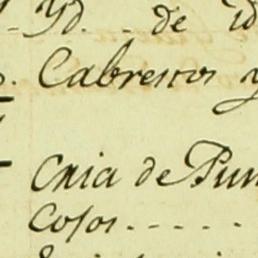 Yd. . de id
Cabrescos y
Cria de Pun
Cosos. - - - -